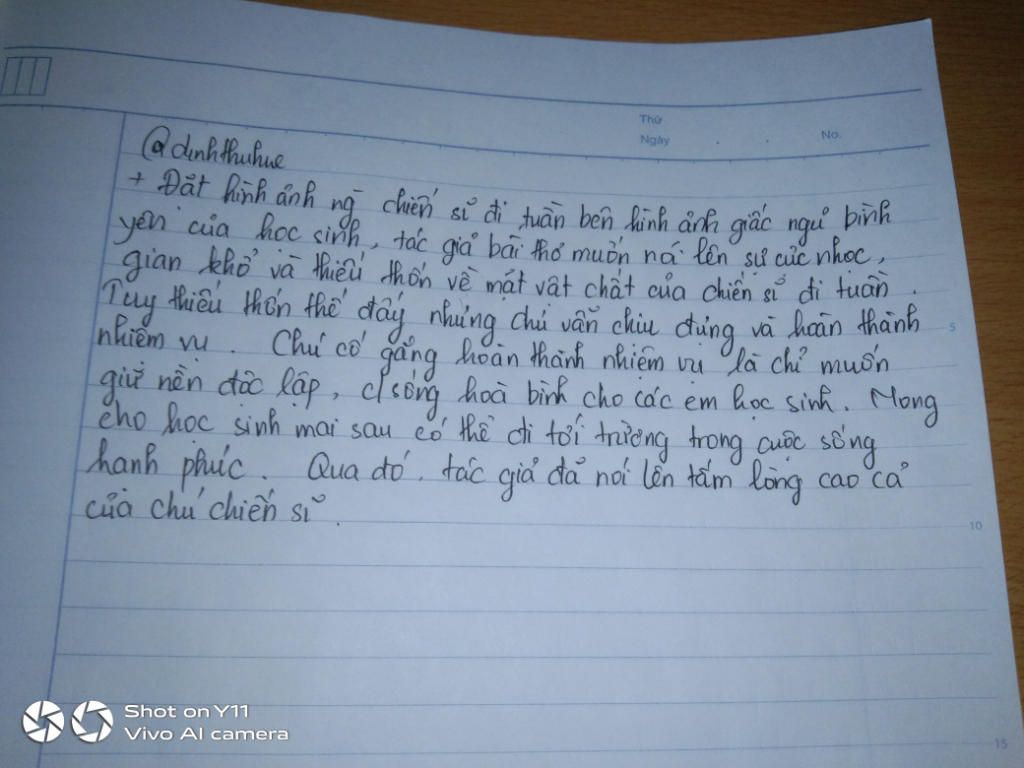 Thứ
Ngày . . No.
@dinhthuhue
+ Đặt hình ảnh ng` chiến sĩ đi tuần bên hình ảnh giấc ngủ bình
yên của học sinh, tác giả bài thơ muốn nói lên sự cực nhọc,
gian khổ và thiếu thốn về mặt vật chất của chiến sĩ đi tuần.
Tuy thiếu thốn thế đấy nhưng chú vẫn chịu đựng và hoàn thành
nhiệm vụ. Chú cố gắng hoàn thành nhiệm vụ là chỉ muốn
giữ nền độc lập, c/sống hoà bình cho các em học sinh. Mong
cho học sinh mai sau có thể đi tới trường trong cuộc sống
hạnh phúc. Qua đó, tác giả đã nói lên tấm lòng cao cả
của chú chiến sĩ.
5
10
15
Shot on Y11
Vivo AI camera